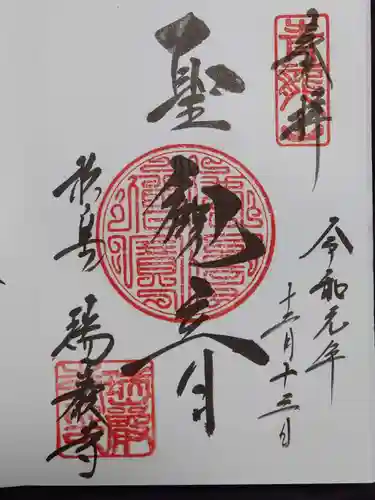 奉拝
令和元年
十二月十三日
聖観音
松島
瑞巌寺